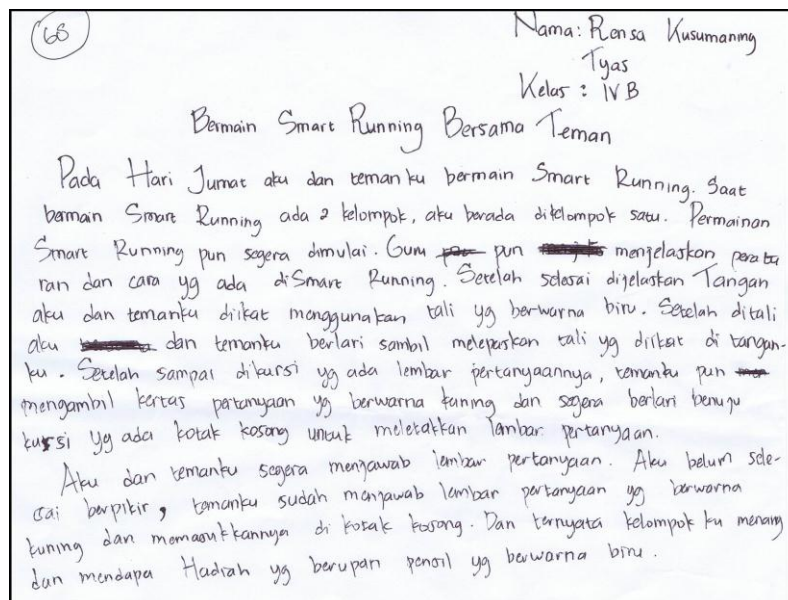 68
Nama: Rensa Kusumaning
Tyas
Kelas : IV B
Bermain Smart Running Bersama Teman
Pada Hari Jumat aku dan temanku bermain Smart Running. Saat
bermain Smart Running ada 2 kelompok, aku berada dikelompok satu. Permainan
Smart Running pun segera dimulai. Guru pun menjelaskan peratu
ran dan cara yg ada diSmart Running. Setelah selesai dijelaskan Tangan
aku dan temanku diikat menggunakan tali yg berwarna biru. Setelah ditali
aku dan temanku berlari sambil melepaskan tali yg diikat di tangan-
ku. Setelah sampai dikursi yg ada lembar pertanyaannya, temanku pun
mengambil kertas pertanyaan yg berwarna kuning dan segera berlari menuju
kursi yg ada kotak kosong untuk meletakkan lembar pertanyaan.
Aku dan temanku segera menjawab lembar pertanyaan. Aku belum sele-
sai berpikir, temanku sudah menjawab lembar pertanyaan yg berwarna
kuning dan memasukkannya di kotak kosong. Dan ternyata kelompok ku menang
dan mendapa Hadiah yg berupan pensil yg berwarna biru.